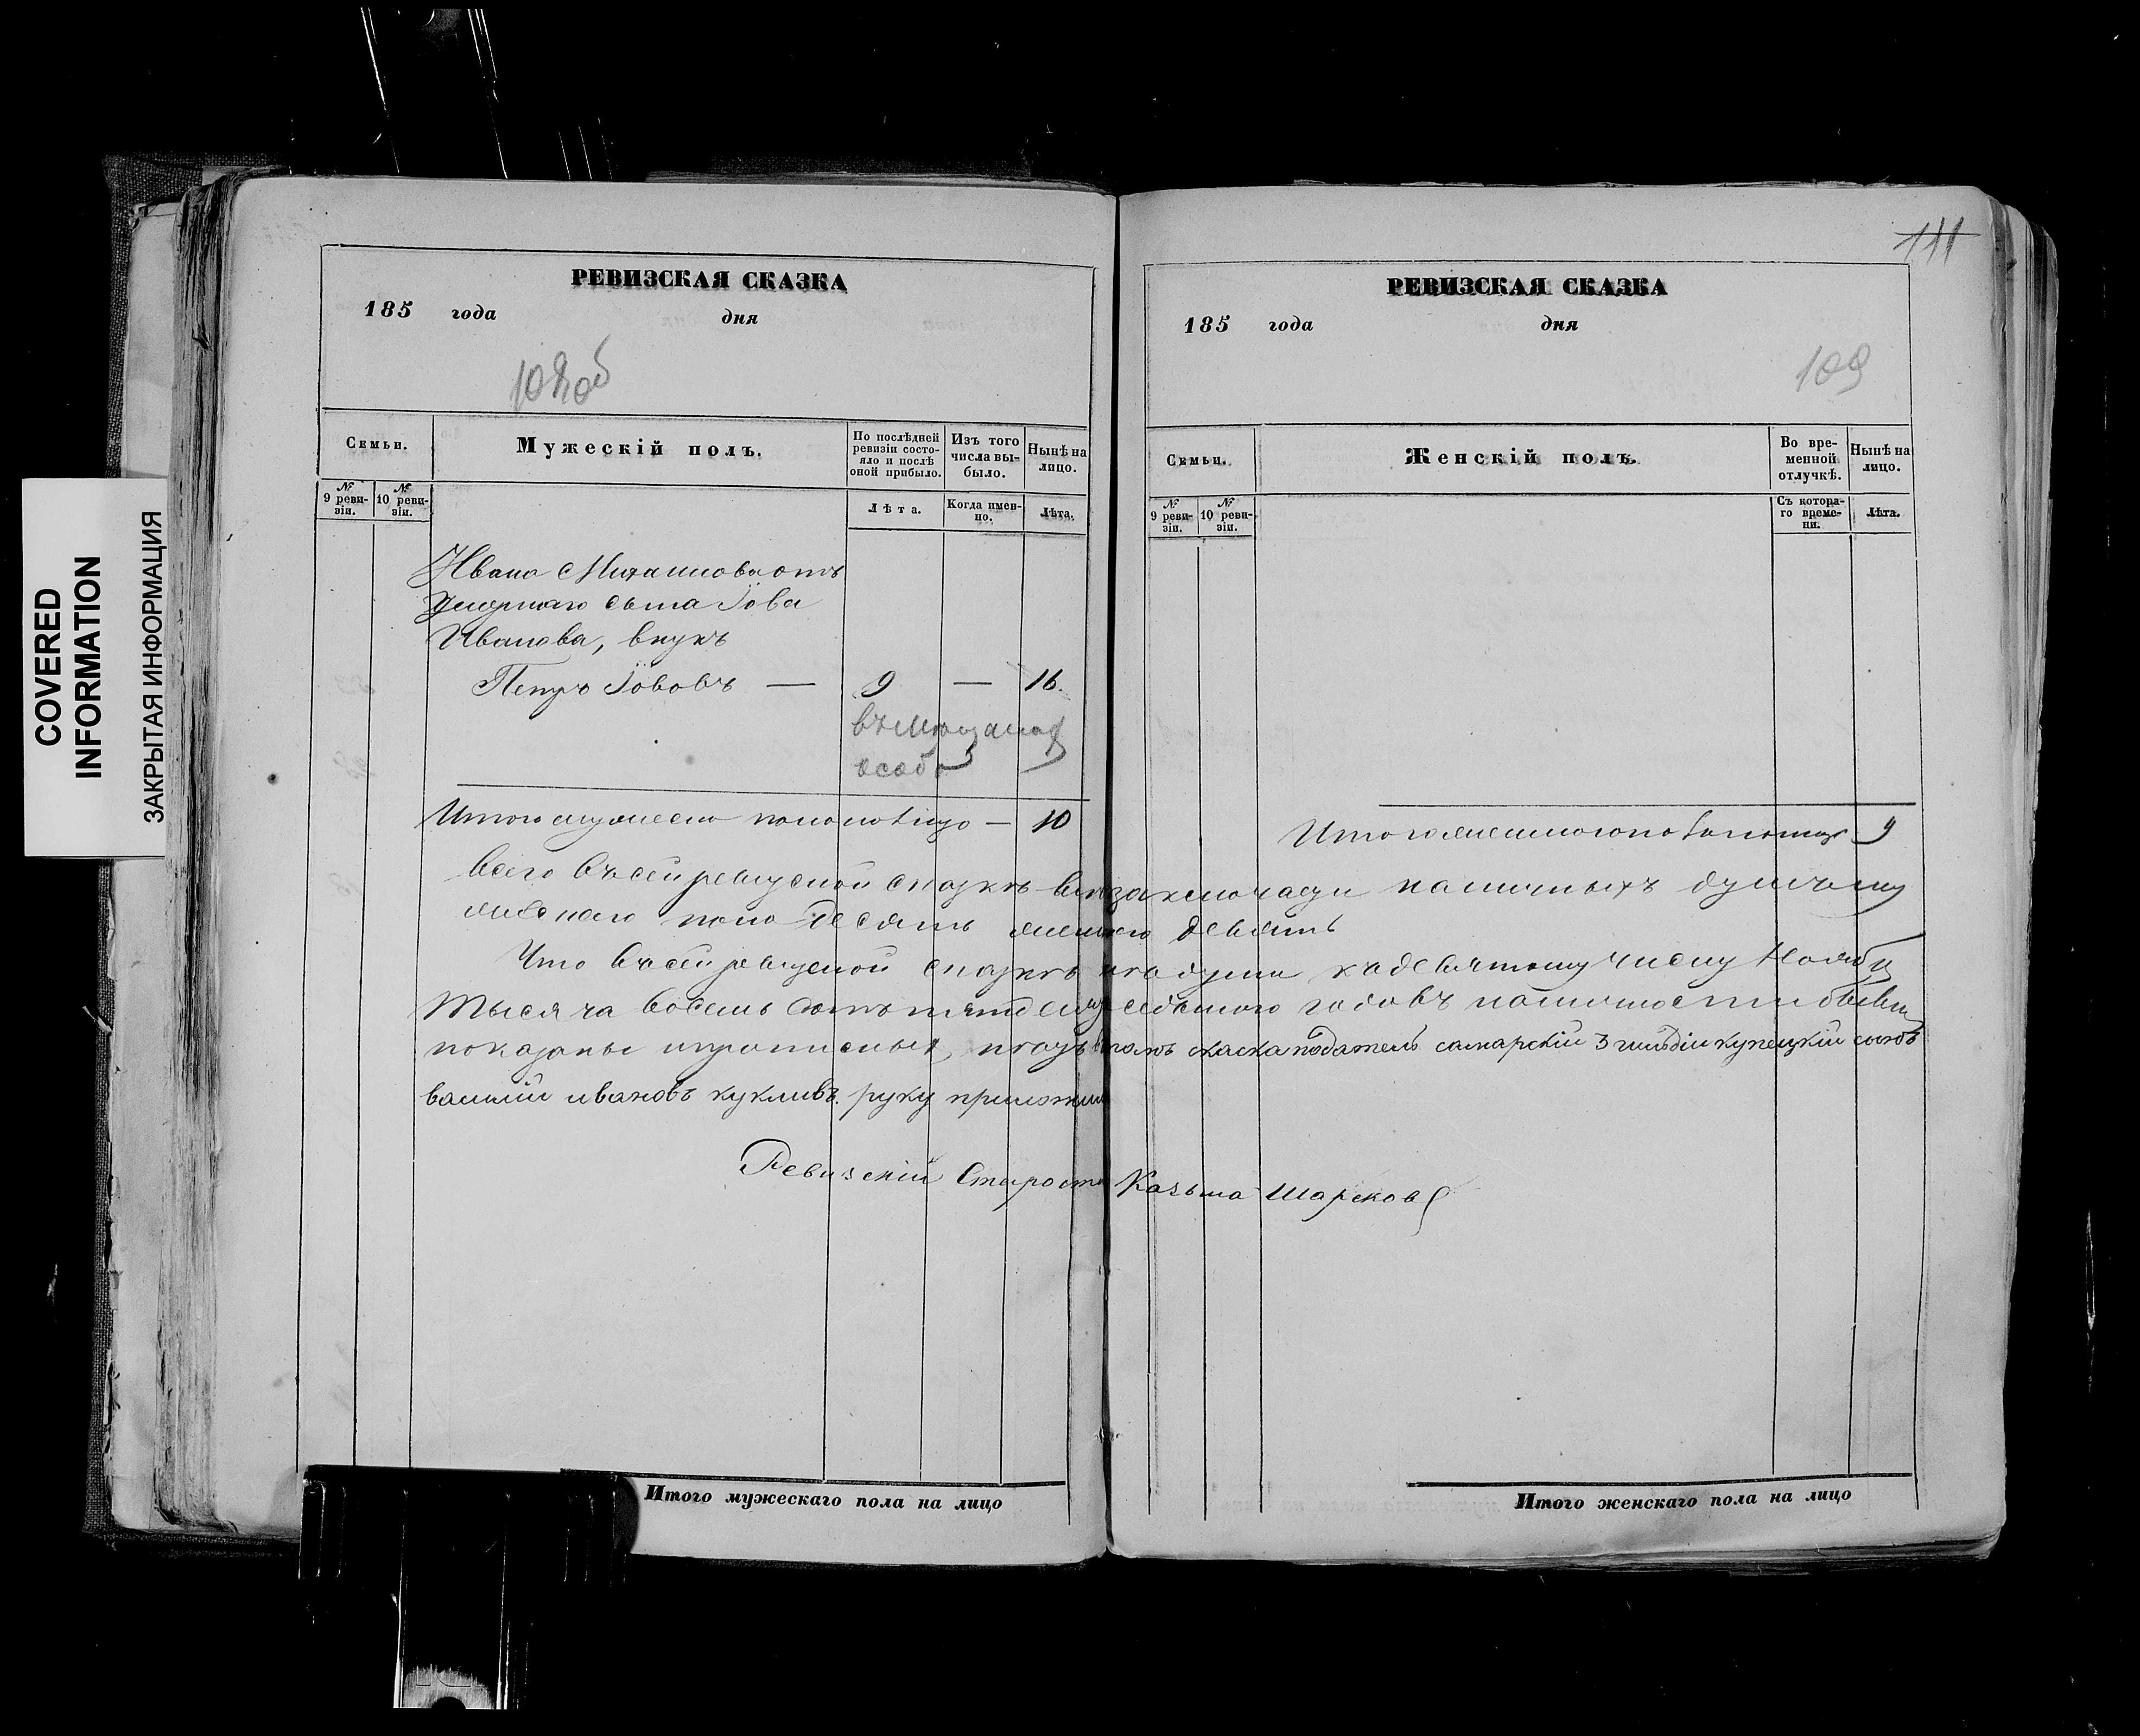 COVERED INFORMATION
ЗАКРЫТАЯ ИНФОРМАЦИЯ
РЕВИЗСКАЯ СКАЗКА
185 года дня
108об
Семьи.
Мужескій полъ.
По послѣдней ревизіи состояло и послѣ оной прибыло.
Изъ того числа выбыло.
Нынѣ на лицо.
№ 9 ревизіи.
№ 10 ревизіи.
Лѣта.
Когда именно.
Лѣта.
Ивана Михаилова отъ
умершаго сына Іова
Иванова, внукъ
Петръ Іововъ — 9 — 16.
въ мѣщанах
особо
Итого мужеска пола на лицо — 10
111
РЕВИЗСКАЯ СКАЗКА
185 года дня
109
Семьи.
Женскій полъ.
Во временной отлучкѣ.
Нынѣ на лицо.
№ 9 ревизіи.
№ 10 ревизіи.
Съ котораго времени.
Лѣта.
Итого женскаго пола на лицо 9
Всего въ сей ревизской сказкѣ заключается наличныхъ душъ му
жескаго пола десять женскаго девять
Что въ сей ревизской сказкѣ всѣ души къ девятому числу Ноября
тысяча восемь сотъ пятьдесятъ седьмаго года въ наличности бывшія
показаны и прописныхъ нѣтъ въ томъ сказкаподатель самарскій 3 гильдіи купецкій сынъ
василій ивановъ кукливъ руку приложилъ
Ревизскій Староста Козьма Шарсков
Итого мужескаго пола на лицо
Итого женскаго пола на лицо